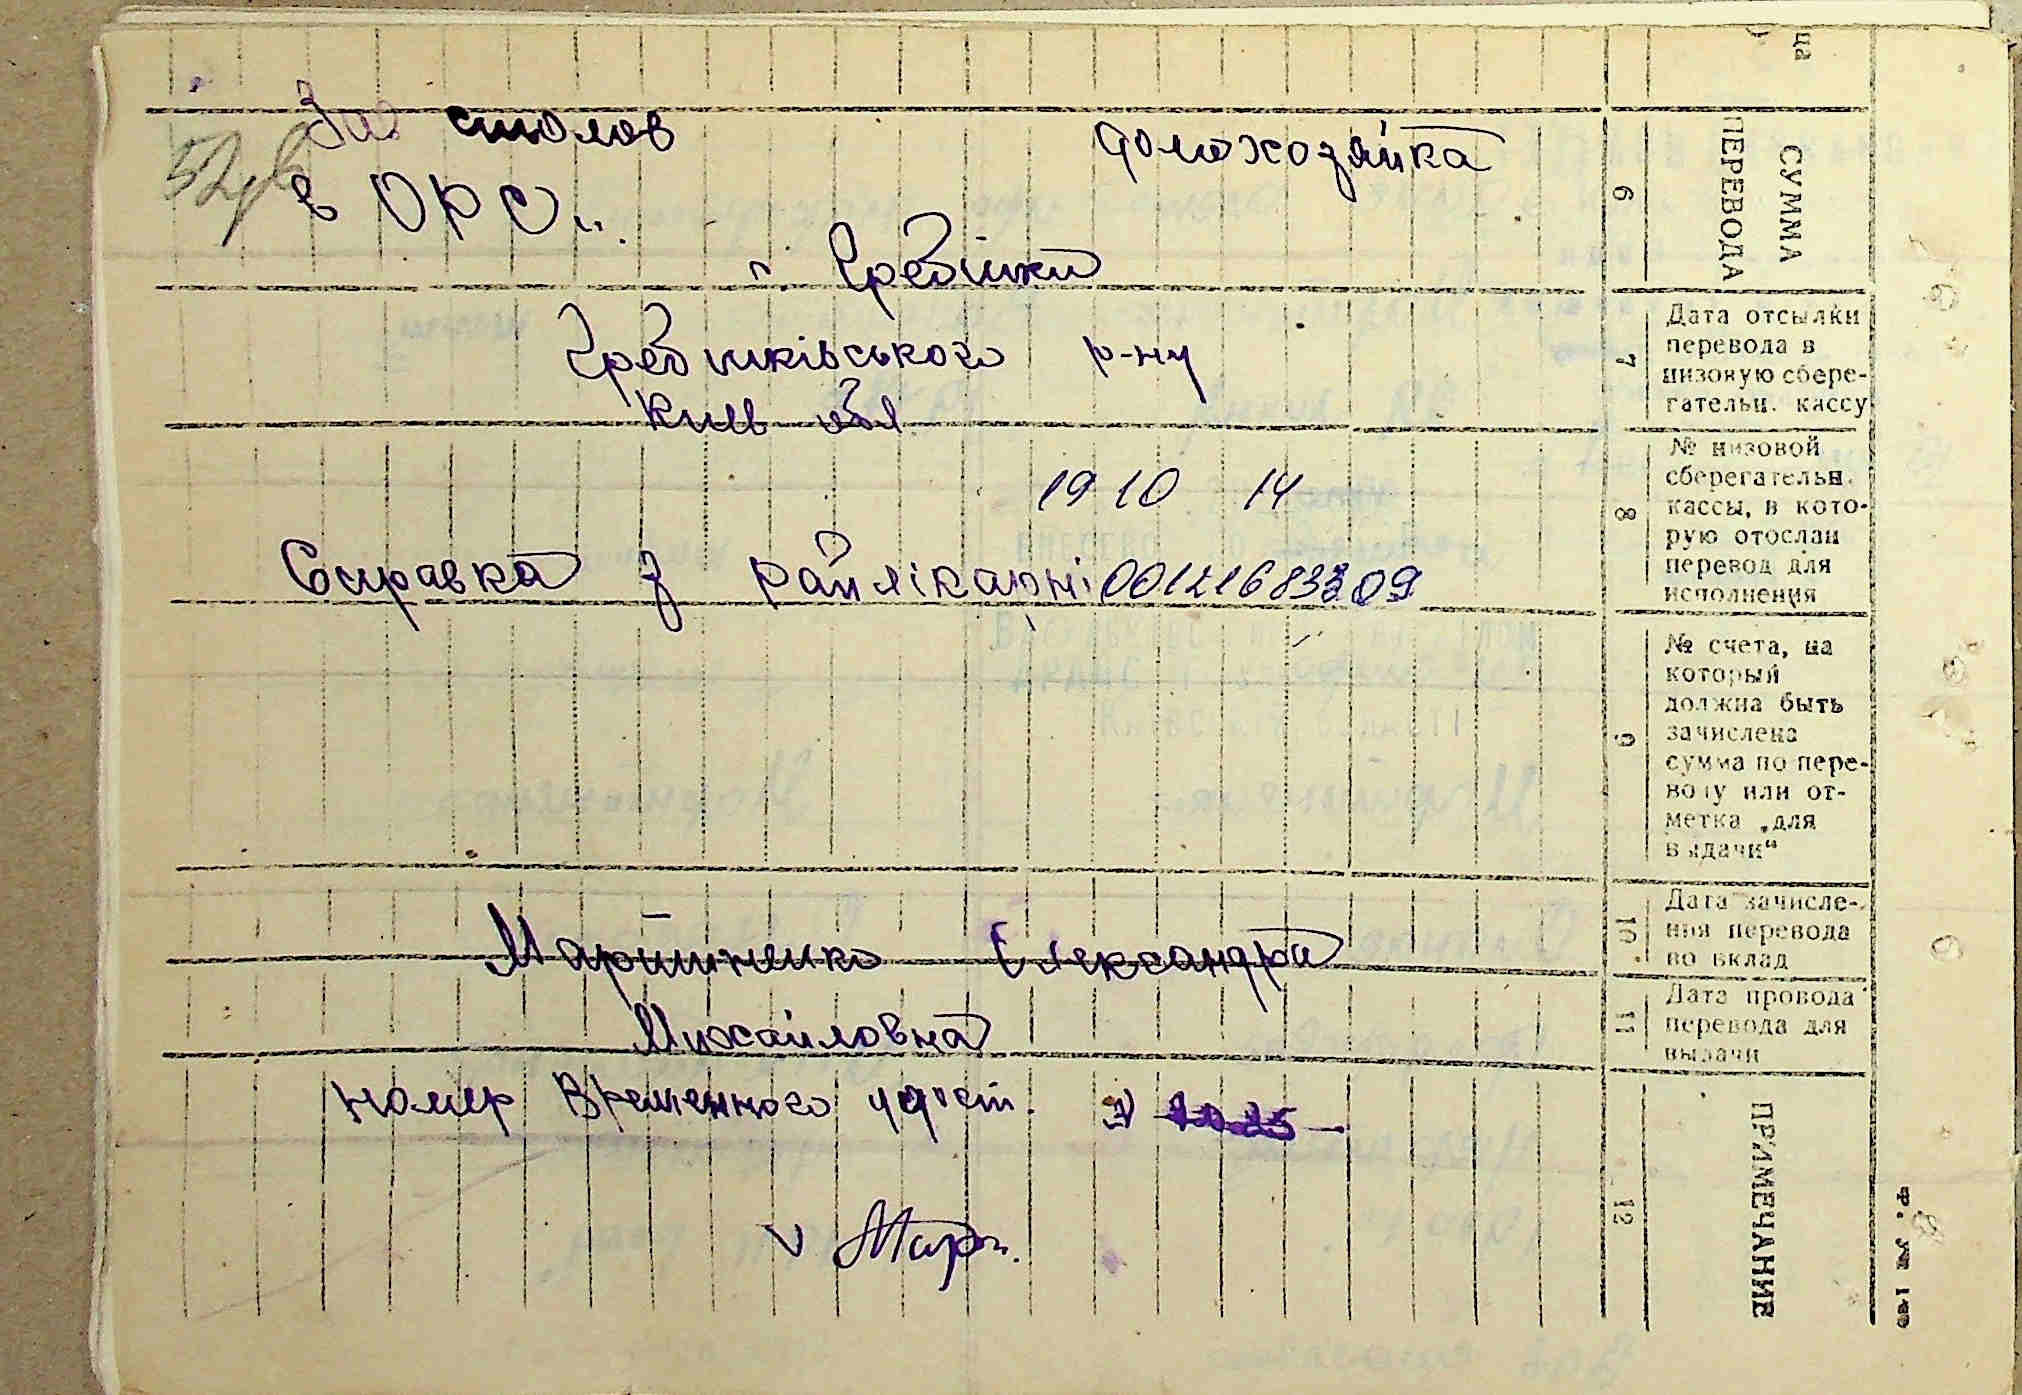 Зав столов
52
в ОРСи.
домохозяйка
г. Гребінки
Гребінківського р-ну
Київ обл
1910 14
Справка з райлікарні 00121683309
Мартиненко Олександра
Михайловна
номер Временного удост. N
v Март.
ца
СУММА
ПЕРЕВОДА
6
Дата отсылки
перевода в
низовую сбере-
гательн. кассу
7
№ низовой
сберегательн.
кассы, в кото-
рую отослан
перевод для
исполнения
8
№ счета, на
который
должна быть
зачислена
сумма по пере-
воду или от-
метка „для
выдачи“
9
Дата зачисле-
ния перевода
во вклад
10
Дата провода
перевода для
выдачи
11
ПРИМЕЧАНИЕ
12